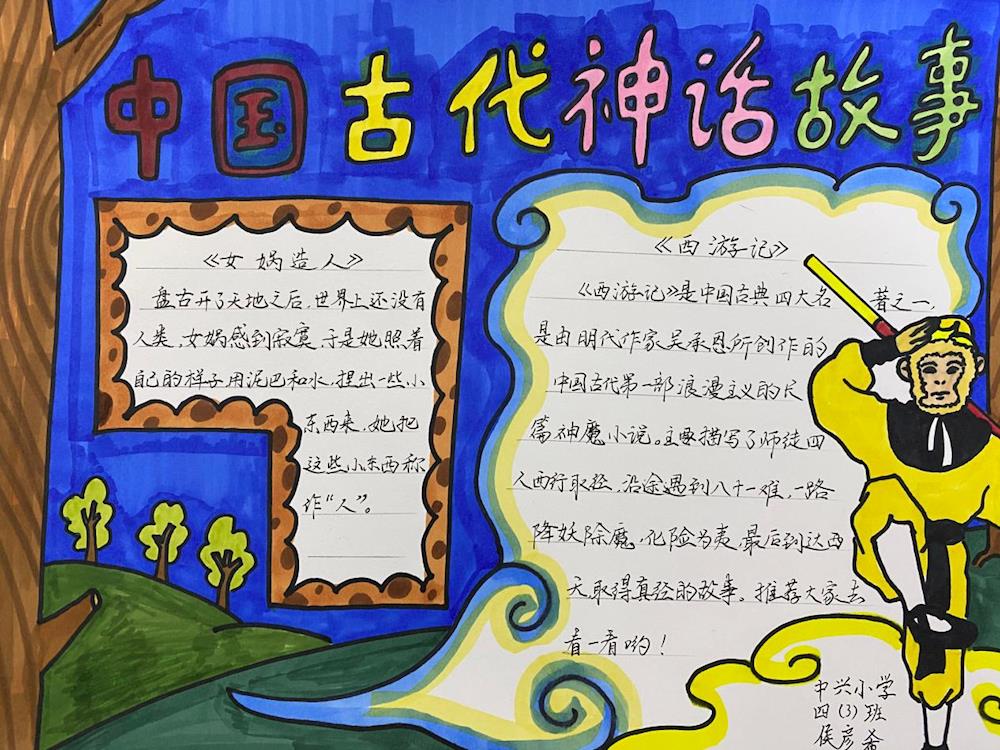 中国古代神话故事
《女娲造人》
盘古开了天地之后，世界上还没有
人类，女娲感到寂寞，于是她照着
自己的样子用泥巴和水，捏出一些小
东西来，她把
这些小东西称
作“人”。
《西游记》
《西游记》是中国古典四大名著之一，
是由明代作家吴承恩所创作的
中国古代第一部浪漫主义的长
篇神魔小说。主要描写了师徒四
人西行取经，沿途遇到八十一难，一路
降妖除魔，化险为夷，最后到达西
天取得真经的故事。推荐大家去
看一看哟！
中兴小学
四（3）班
侯彦希